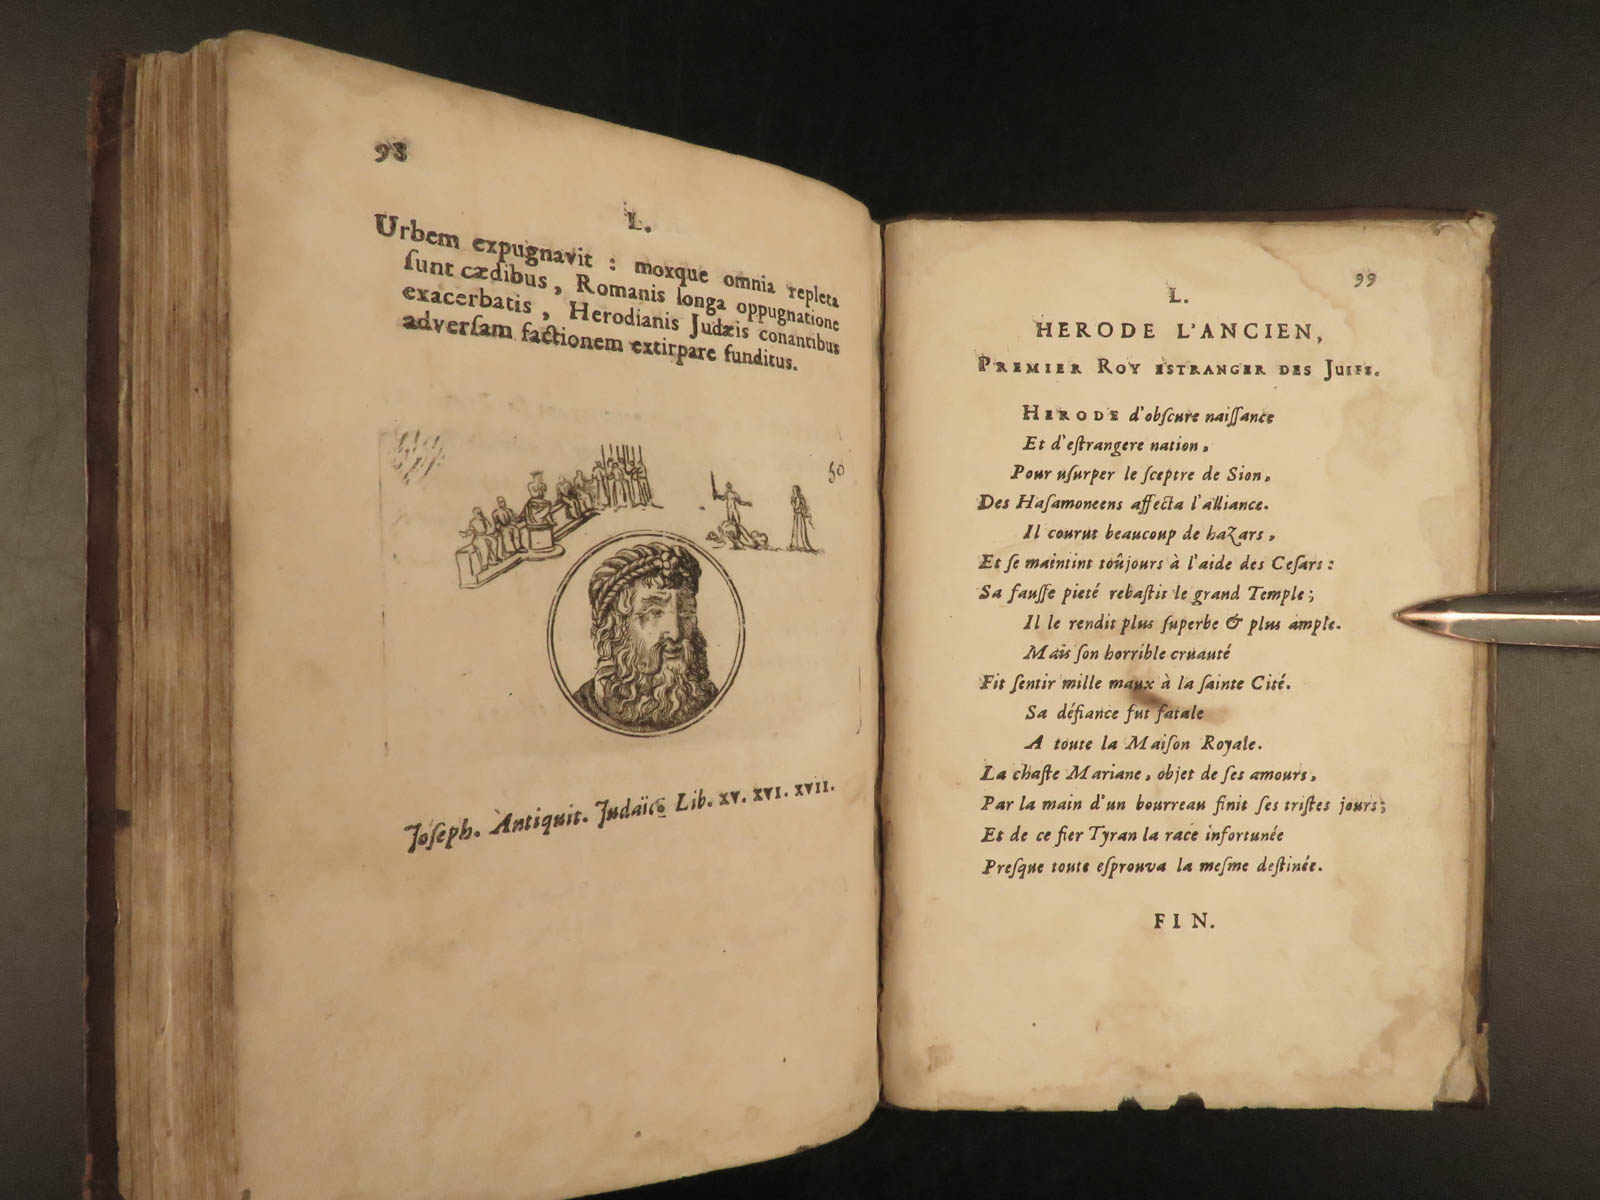 98
L.
Urbem expugnavit : moxque omnia repleta
ſunt cædibus, Romanis longa oppugnatione
exacerbatis, Herodianis Judæis conantibus
adverſam factionem extirpare funditus.
50
Joſeph. Antiquit. Judaïc. Lib. XV. XVI. XVII.
99
L.
HERODE L'ANCIEN,
PREMIER ROY ESTRANGER DES JUIFS.
HERODE d'obſcure naiſſance
Et d'eſtrangere nation,
Pour uſurper le ſceptre de Sion,
Des Haſamoneens affecta l'alliance.
Il courut beaucoup de hazars,
Et ſe maintint toûjours à l'aide des Ceſars:
Sa fauſſe pieté rebaſtit le grand Temple;
Il le rendit plus ſuperbe & plus ample.
Mais ſon horrible cruauté
Fit ſentir mille maux à la ſainte Cité.
Sa défiance fut fatale
A toute la Maiſon Royale.
La chaſte Mariane, objet de ſes amours,
Par la main d'un bourreau finit ſes triſtes jours;
Et de ce fier Tyran la race infortunée
Preſque toute eſprouva la meſme deſtinée.
FIN.